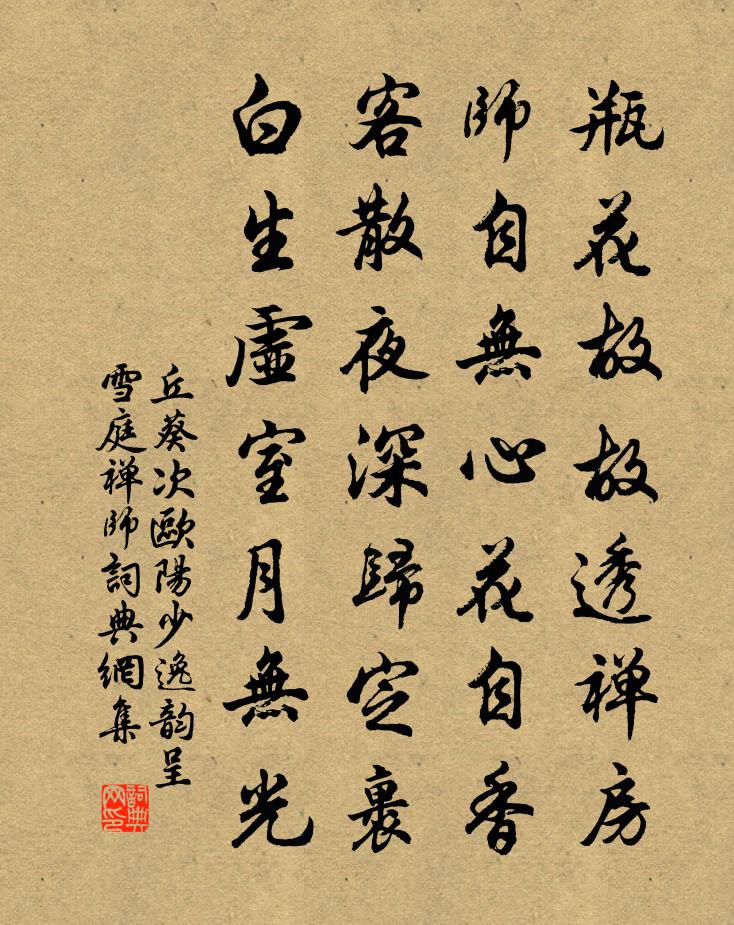 瓶花故故透禅房
師自無心花自香
客散夜深歸定裏
白生虛室月無光
丘葵次歐陽少逸韵呈
雪庭禅師詞典網集
詞典
网印